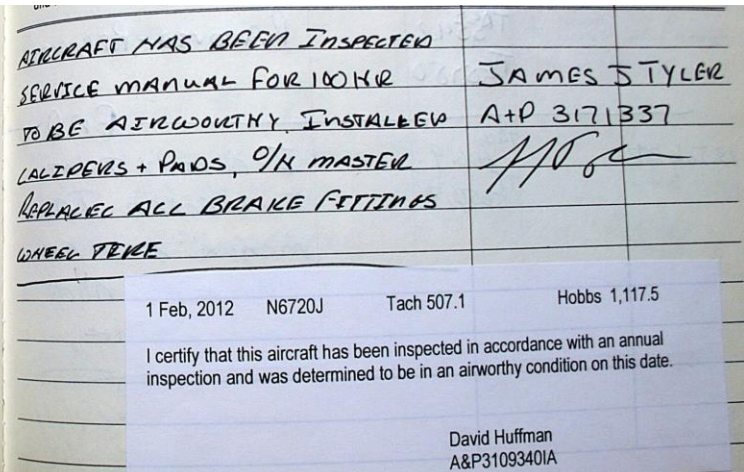 AIRCRAFT HAS BEEN INSPECTED
SERVICE MANUAL FOR 100 HR JAMES J TYLER
TO BE AIRWORTHY. INSTALLED A+P 3171337
CALIPERS + PADS, O/H MASTER
REPLACED ALL BRAKE FITTINGS
WHEEL TIRE
1 Feb, 2012 N6720J Tach 507.1 Hobbs 1,117.5
I certify that this aircraft has been inspected in accordance with an annual
inspection and was determined to be in an airworthy condition on this date.
David Huffman
A&P3109340IA